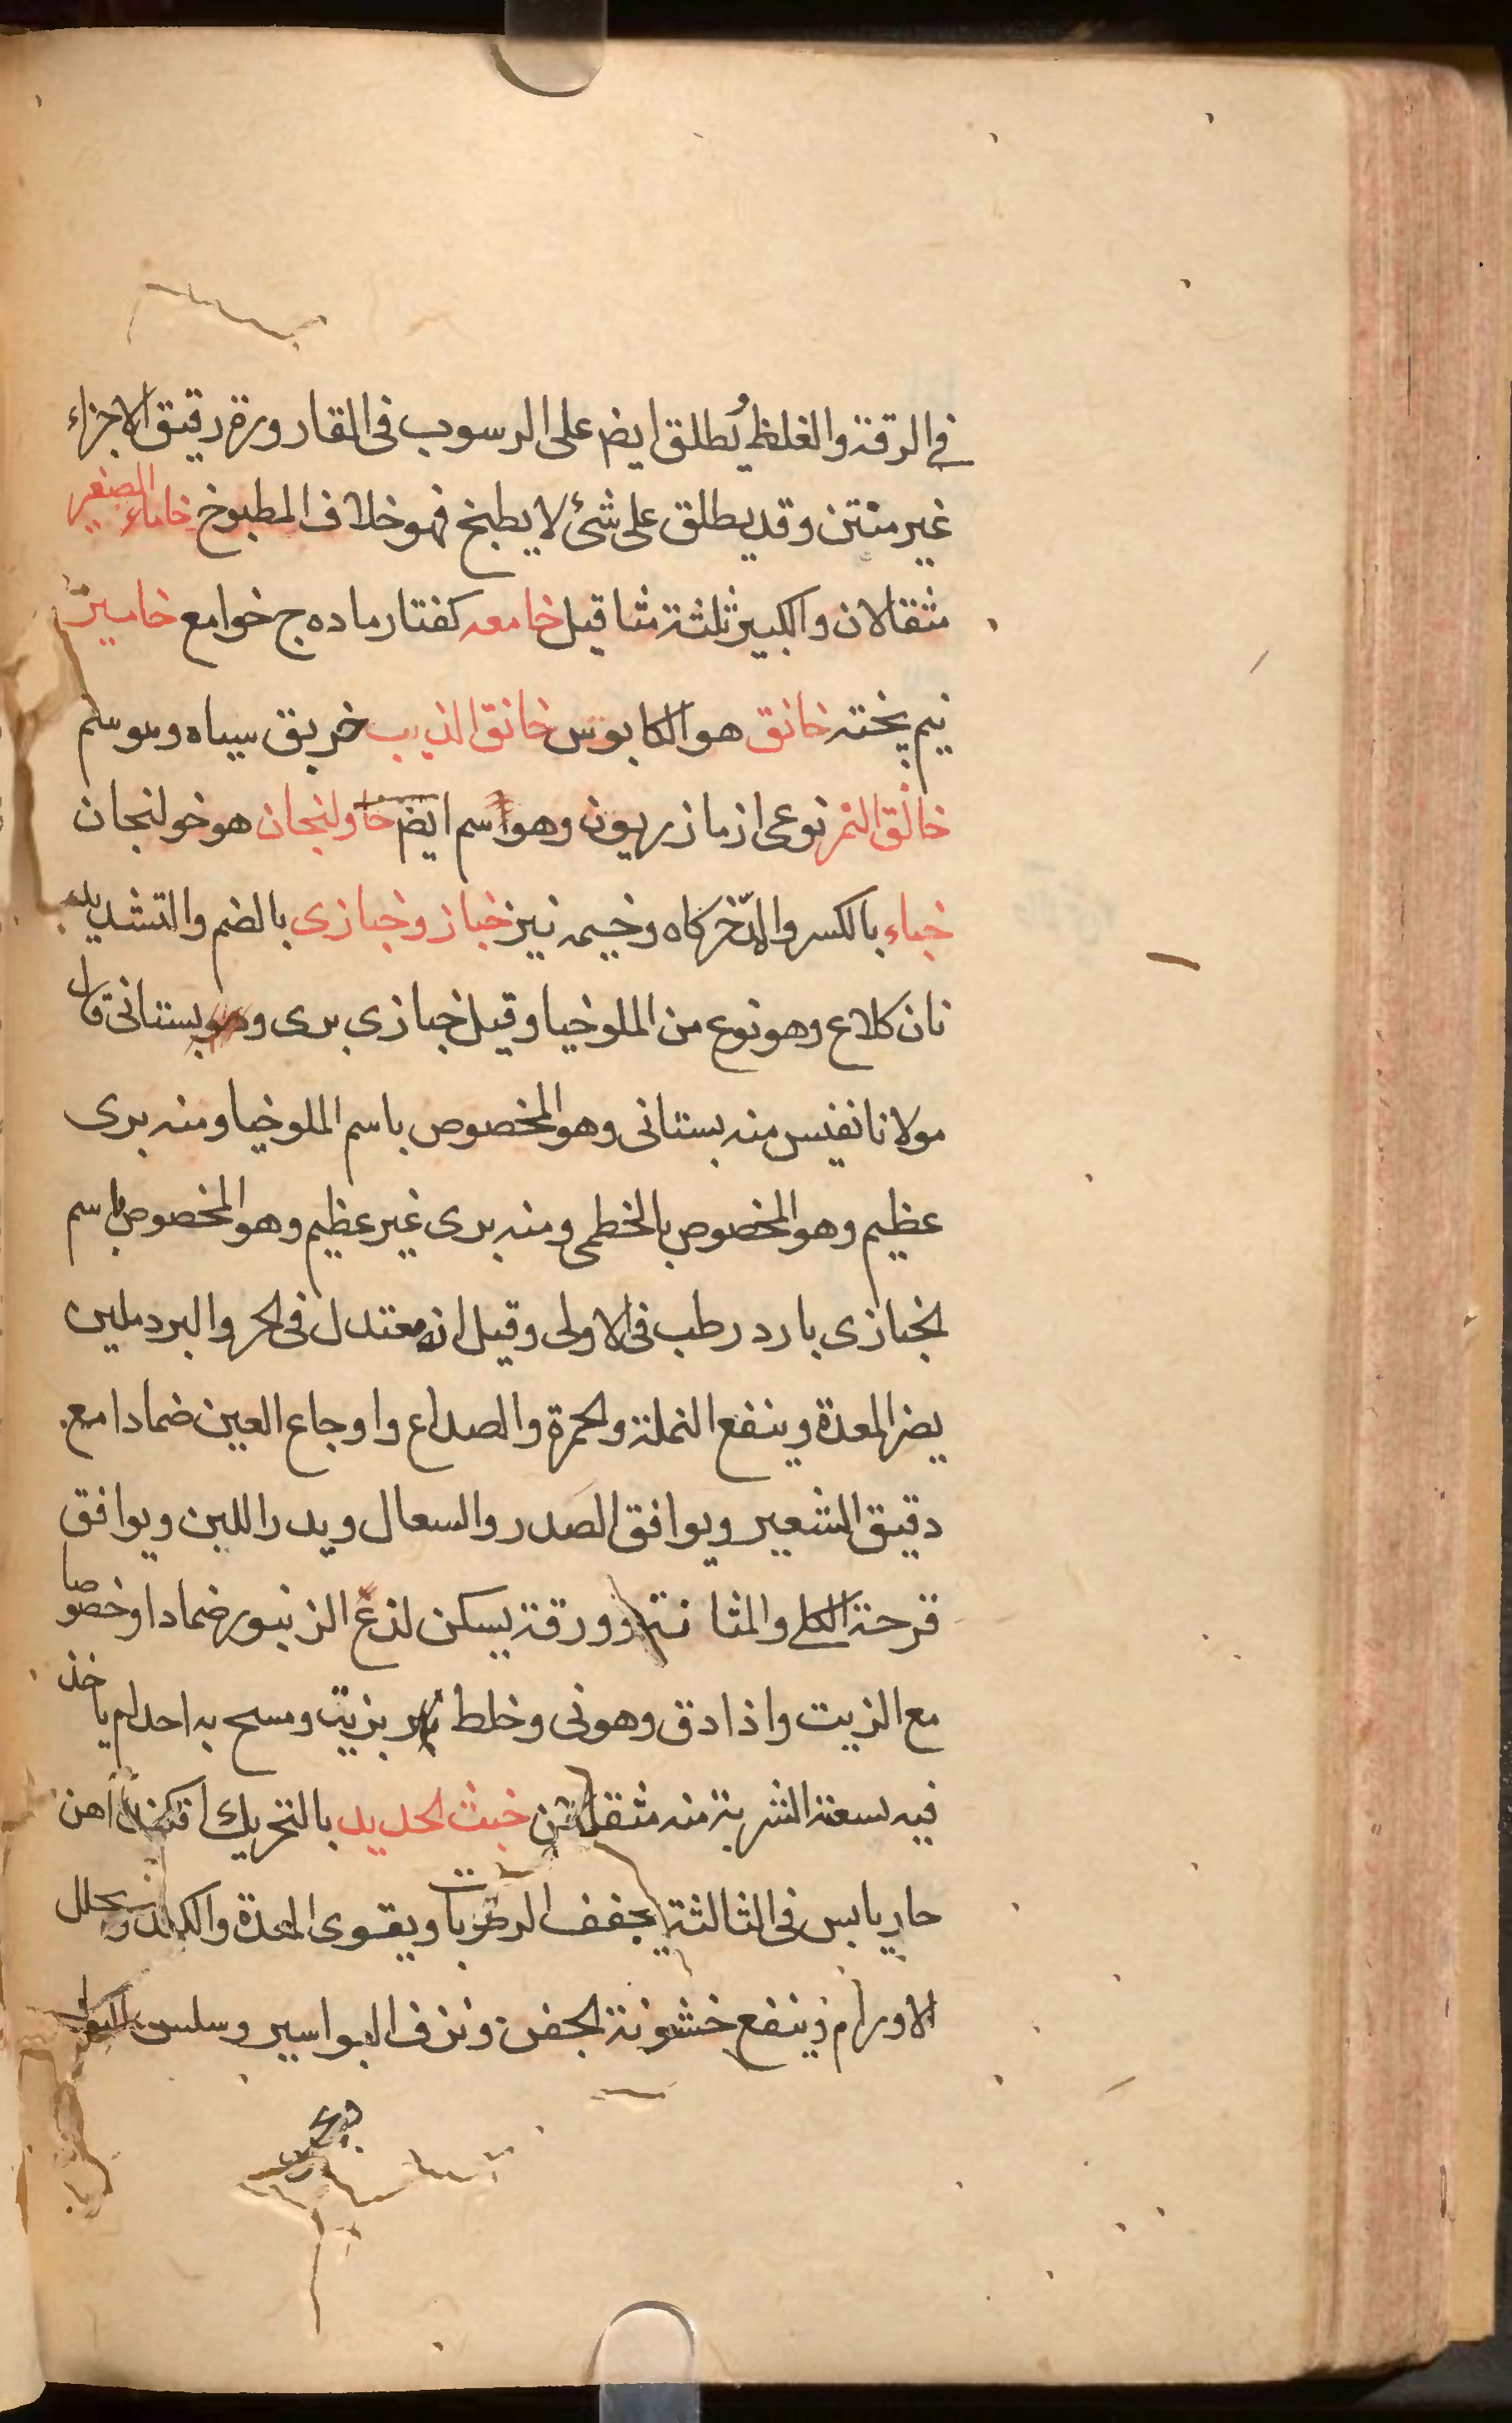 في الرقة والغلظ يُطلق ايضا على الرسوب فى القارورة رقيق الاجزاء
غير منتن وقد يطلق على شئ لا يطبخ فهو خلاف المطبوخ خاماء الصغير
مثقالان والكبير ثلثة مثاقيل خامعه كفتار ماده ج خوامع خاميز
نيم پخته خانق هو الكابوس خانق الذيب خربق سياه وهو سم
خانق النمر نوعى از مازريون وهو اسم ايضا خاولنجان هو خولنجان
خباء بالكسر والمد خركاه وخيمه نيز خباز وخبازى بالضم والتشديد
نان كلاع وهو نوع من الملوخيا وقيل خبازي برى و بستانى قال
مولانا نفيس منه بستانى وهو المخصوص باسم الملوخيا ومنه برى
عظيم وهو المخصوص بالخطمى ومنه برى غير عظيم وهو المخصوص باسم
الخبازى بارد رطب فى الاولى وقيل انه معتدل فى الحر والبرد ملين
يضر المعدة وينفع النملة والحمرة والصداع واوجاع العين ضمادا مع
دقيق الشعير ويوافق الصدر والسعال ويدر اللبن ويوافق
قرحة الكلى والمثانة وورقة يسكن لذع الزنبور ضمادا وخصوصا
مع الزيت واذا دق وهو نى وخلط بزيت ومسح به احد لم ياخذ
فيه لسعة الشربة منه مثقالين خبث الحديد بالتحريك اهن
حار يابس فى الثالثة يجفف الرطوبات ويقوى المعدة والكبد ويحلل
الاورام وينفع خشونة الجفن ونزف البواسير وسلس البول